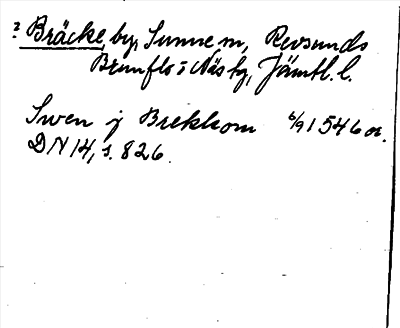 ? Bräcke, by, Sunne sn, Revsunds
Brunflo o Näs tg, Jämtl. l.
Swen j Brekkom 6/9 1546 or.
DN 14, s. 826.